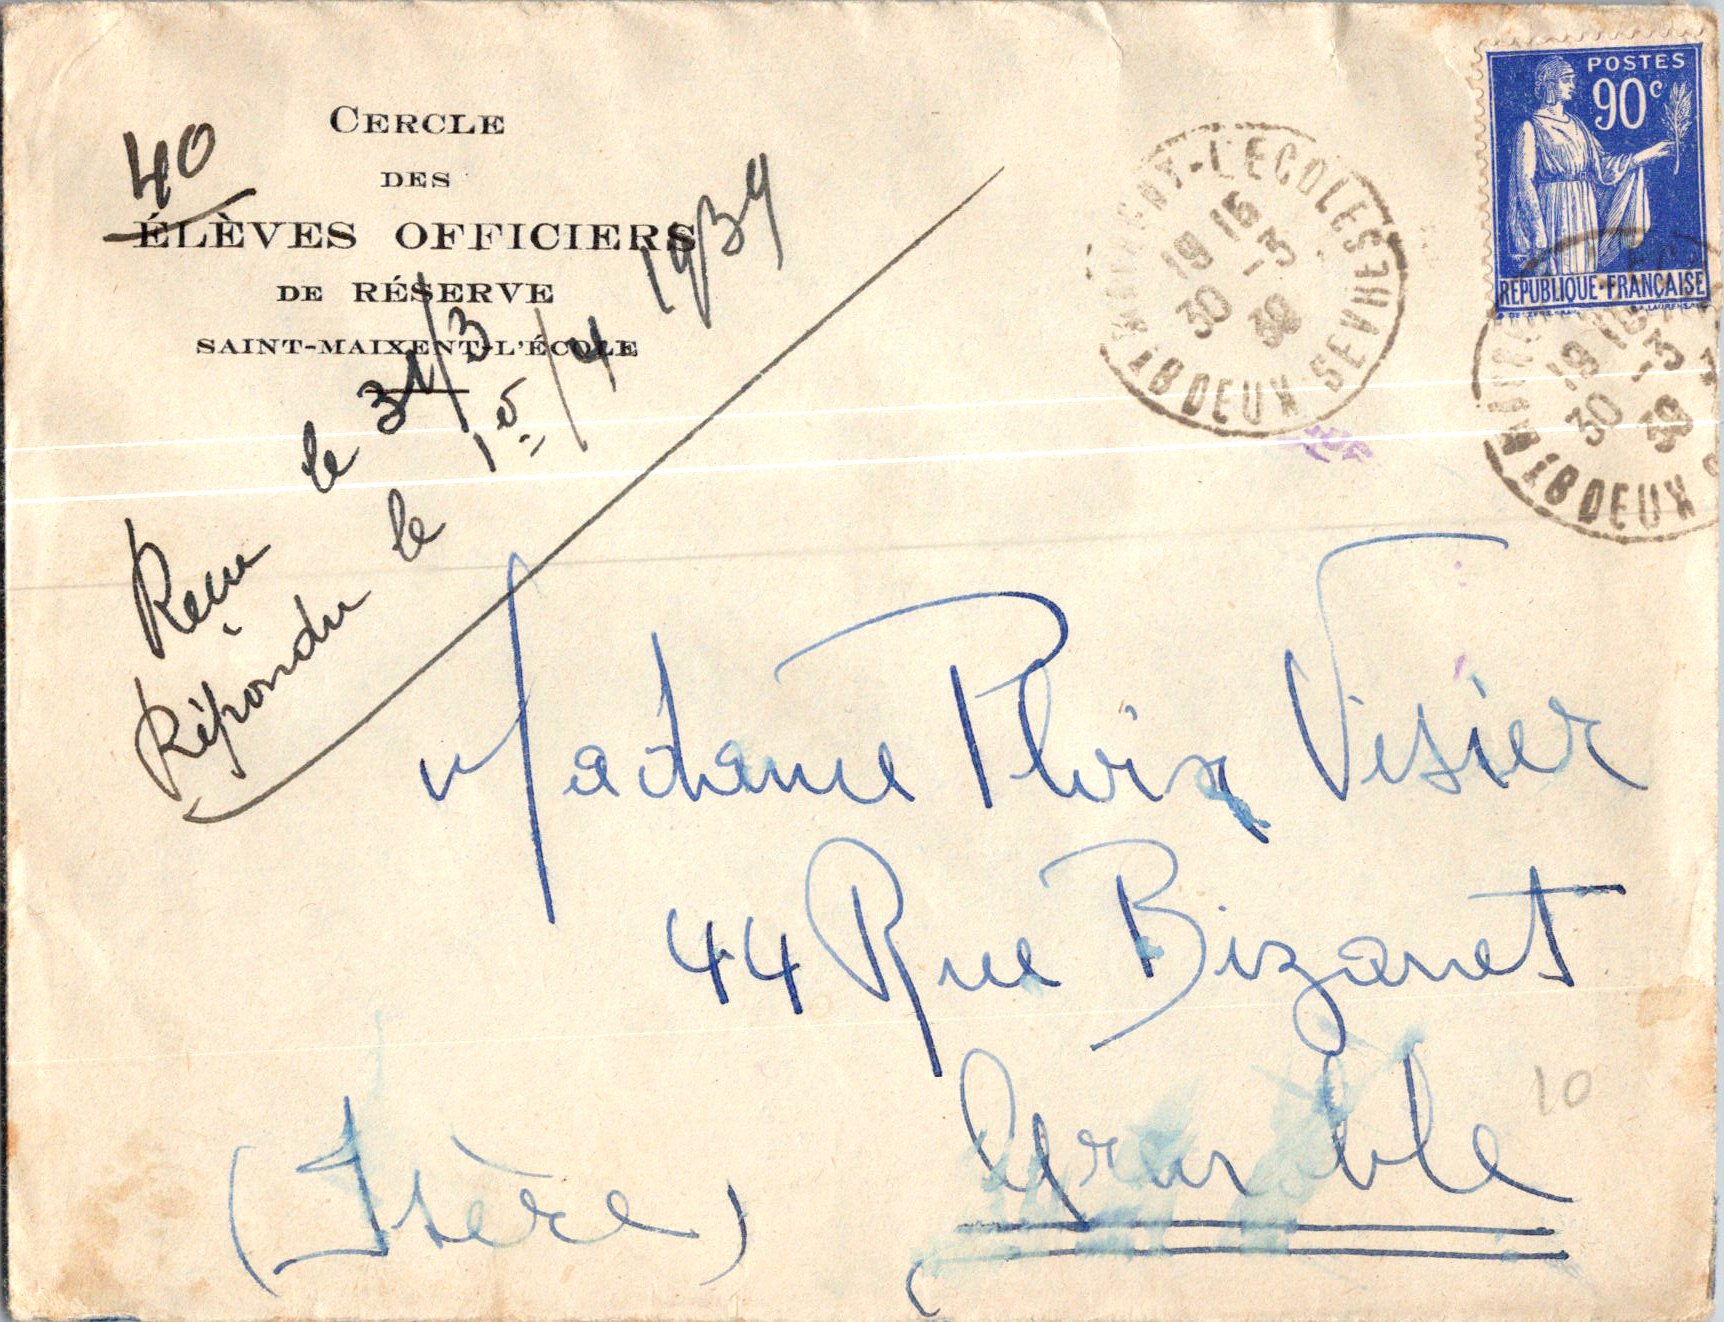 CERCLE
DES
ÉLÈVES OFFICIERS
DE RÉSERVE
SAINT-MAIXENT-L'ÉCOLE
40
Reçu le 31/3
Répondu le 15/4 1939
POSTES
90c
RÉPUBLIQUE-FRANÇAISE
L'ECOLE
DEUX-SEVRES
19 15
30 -3
39
19 15
30 -3
39
DEUX
Madame Ploix Visier
44 Rue Bizanet
Grenoble
(Isère)
10